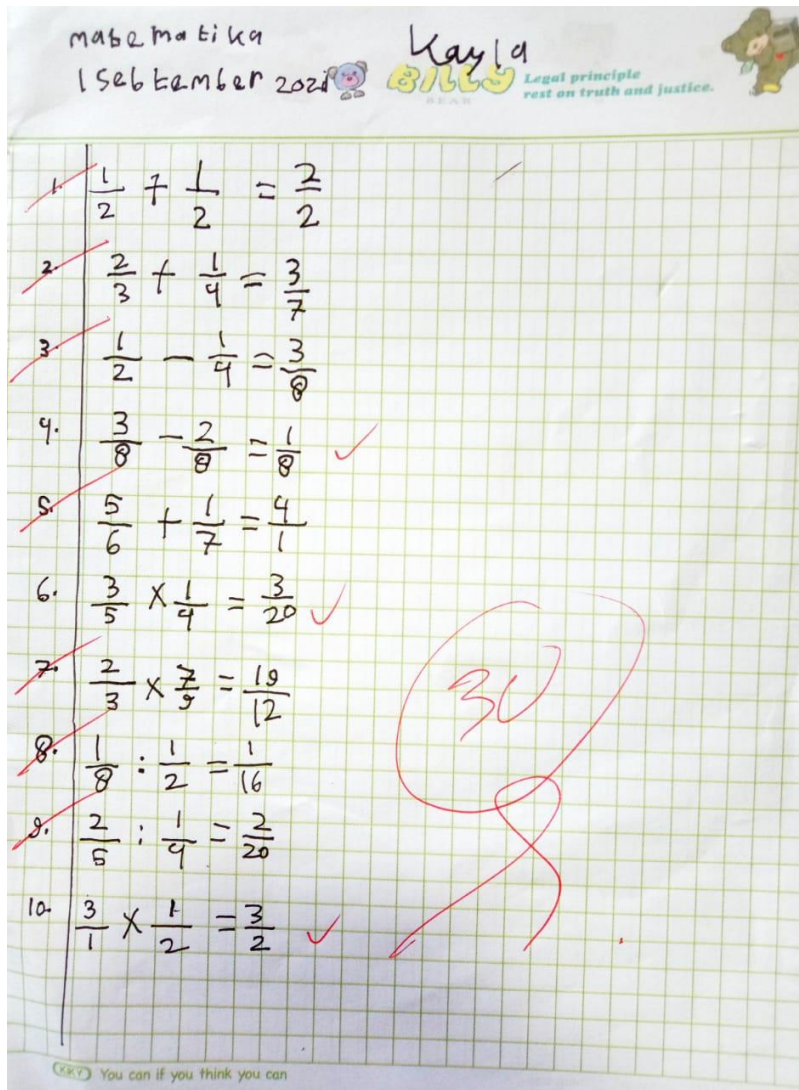 matematika
Kayla
1 Sebtember 2021
BILLY
BEAR
Legal principle
rest on truth and justice.
1. 1/2 + 1/2 = 2/2
2. 2/3 + 1/4 = 3/7
3. 1/2 - 1/4 = 3/8
4. 3/8 - 2/8 = 1/8 ✓
5. 5/6 + 1/7 = 4/1
6. 3/5 × 1/4 = 3/20 ✓
7. 2/3 × 7/9 = 19/12
8. 1/8 : 1/2 = 1/16
9. 2/5 : 1/4 = 2/20
10. 3/1 × 1/2 = 3/2 ✓
30
KKY You can if you think you can